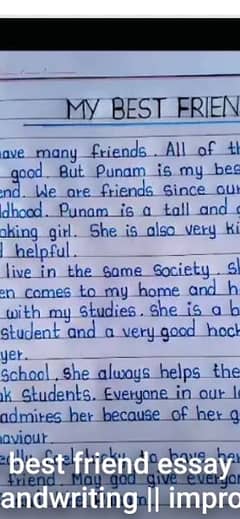 MY BEST FRIEN
ave many friends. All of th
good. But Punam is my bes
end. We are friends since our
ldhood. Punam is a tall and g
oking girl. She is also very ki
d helpful.
live in the same society. sh
en comes to my home and h
with my studies. She is a b
student and a very good hock
yer.
school, she always helps the
ak students. Everyone in our l
admires her because of her g
aviour.
to have her
best friend essay
friend. May god give everyon
andwriting || impro